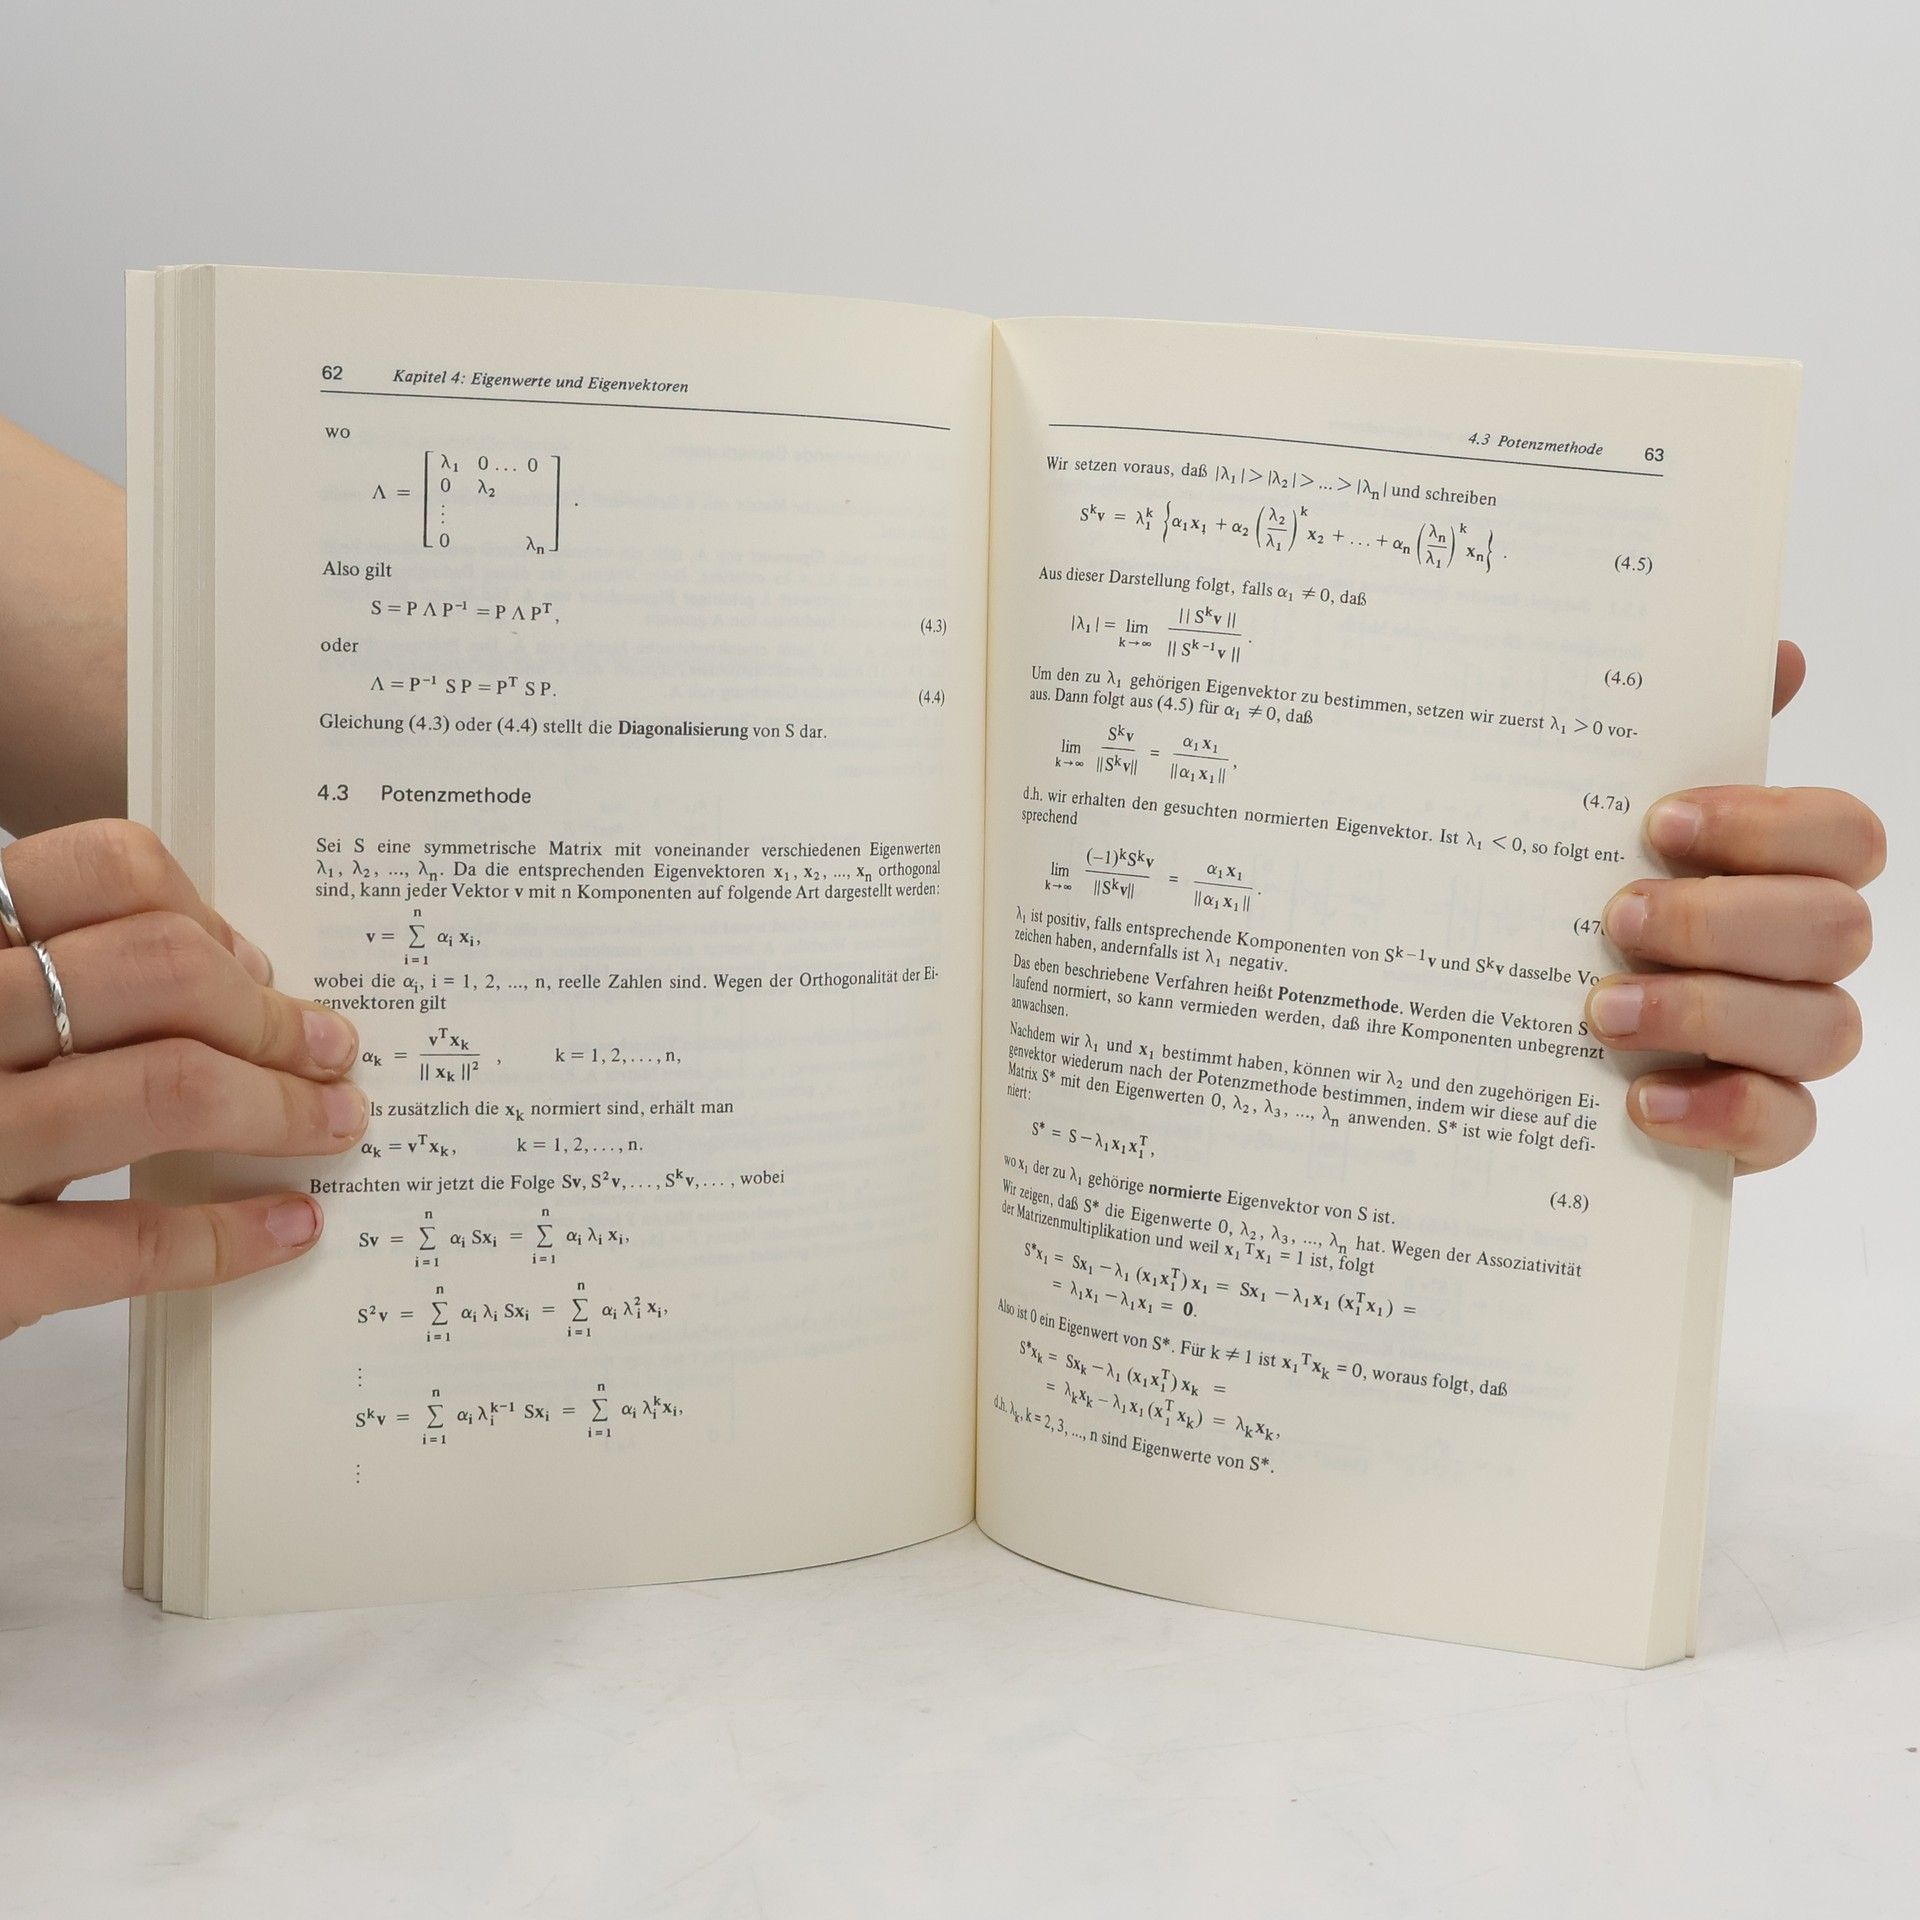 62 Kapitel 4: Eigenwerte und Eigenvektoren
wo
Λ = [ λ₁ 0 ... 0
0 λ₂
⋮
0 λₙ ] .
Also gilt
S = P Λ P⁻¹ = P Λ Pᵀ, (4.3)
oder
Λ = P⁻¹ S P = Pᵀ S P. (4.4)
Gleichung (4.3) oder (4.4) stellt die Diagonalisierung von S dar.
4.3 Potenzmethode
Sei S eine symmetrische Matrix mit voneinander verschiedenen Eigenwerten
λ₁, λ₂, ..., λₙ. Da die entsprechenden Eigenvektoren x₁, x₂, ..., xₙ orthogonal
sind, kann jeder Vektor v mit n Komponenten auf folgende Art dargestellt werden:
v = Σ_{i=1}^{n} αᵢ xᵢ,
wobei die αᵢ, i = 1, 2, ..., n, reelle Zahlen sind. Wegen der Orthogonalität der Ei-
genvektoren gilt
αₖ = vᵀxₖ / ||xₖ||² , k = 1, 2, . . . , n,
ls zusätzlich die xₖ normiert sind, erhält man
αₖ = vᵀxₖ, k = 1, 2, . . . , n.
Betrachten wir jetzt die Folge Sv, S²v, . . . , Sᵏv, . . . , wobei
Sv = Σ_{i=1}^{n} αᵢ Sxᵢ = Σ_{i=1}^{n} αᵢ λᵢ xᵢ,
S²v = Σ_{i=1}^{n} αᵢ λᵢ Sxᵢ = Σ_{i=1}^{n} αᵢ λᵢ² xᵢ,
⋮
Sᵏv = Σ_{i=1}^{n} αᵢ λᵢᵏ⁻¹ Sxᵢ = Σ_{i=1}^{n} αᵢ λᵢᵏ xᵢ,
⋮
4.3 Potenzmethode 63
Wir setzen voraus, daß |λ₁| > |λ₂| > ... > |λₙ| und schreiben
Sᵏv = λ₁ᵏ {α₁x₁ + α₂ (λ₂/λ₁)ᵏ x₂ + . . . + αₙ (λₙ/λ₁)ᵏ xₙ} . (4.5)
Aus dieser Darstellung folgt, falls α₁ ≠ 0, daß
|λ₁| = lim_{k→∞} ||Sᵏv|| / ||Sᵏ⁻¹v|| . (4.6)
Um den zu λ₁ gehörigen Eigenvektor zu bestimmen, setzen wir zuerst λ₁ > 0 vor-
aus. Dann folgt aus (4.5) für α₁ ≠ 0, daß
lim_{k→∞} Sᵏv / ||Sᵏv|| = α₁x₁ / ||α₁x₁|| , (4.7a)
d.h. wir erhalten den gesuchten normierten Eigenvektor. Ist λ₁ < 0, so folgt ent-
sprechend
lim_{k→∞} (-1)ᵏSᵏv / ||Sᵏv|| = α₁x₁ / ||α₁x₁|| . (47
λ₁ ist positiv, falls entsprechende Komponenten von Sᵏ⁻¹v und Sᵏv dasselbe Vo
zeichen haben, andernfalls ist λ₁ negativ.
Das eben beschriebene Verfahren heißt Potenzmethode. Werden die Vektoren S
laufend normiert, so kann vermieden werden, daß ihre Komponenten unbegrenzt
anwachsen.
Nachdem wir λ₁ und x₁ bestimmt haben, können wir λ₂ und den zugehörigen Ei-
genvektor wiederum nach der Potenzmethode bestimmen, indem wir diese auf die
Matrix S* mit den Eigenwerten 0, λ₂, λ₃, ..., λₙ anwenden. S* ist wie folgt defi-
niert:
S* = S − λ₁x₁x₁ᵀ, (4.8)
wo x₁ der zu λ₁ gehörige normierte Eigenvektor von S ist.
Wir zeigen, daß S* die Eigenwerte 0, λ₂, λ₃, ..., λₙ hat. Wegen der Assoziativität
der Matrizenmultiplikation und weil x₁ᵀx₁ = 1 ist, folgt
S*x₁ = Sx₁ − λ₁ (x₁x₁ᵀ) x₁ = Sx₁ − λ₁x₁ (x₁ᵀx₁) =
= λ₁x₁ − λ₁x₁ = 0.
Also ist 0 ein Eigenwert von S*. Für k ≠ 1 ist x₁ᵀxₖ = 0, woraus folgt, daß
S*xₖ = Sxₖ − λ₁ (x₁x₁ᵀ) xₖ =
= λₖxₖ − λ₁x₁ (x₁ᵀxₖ) = λₖxₖ,
d.h. λₖ, k = 2, 3, ..., n sind Eigenwerte von S*.